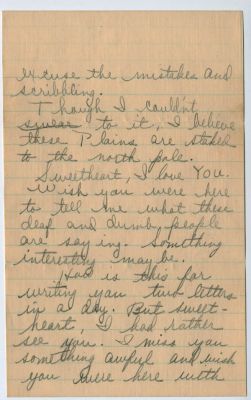 excuse the mistakes and
scribbling.
Though I couldn't
swear to it, I believe
these Plains are staked
to the north pole.
Sweetheart, I love You.
Wish you were here
to tell me what these
deaf and dumb people
are saying. Something
interesting maybe.
How is this for
writing you two letters
in a day. But sweet-
heart, I had rather
see you. I miss you
something awful and wish
you were here with